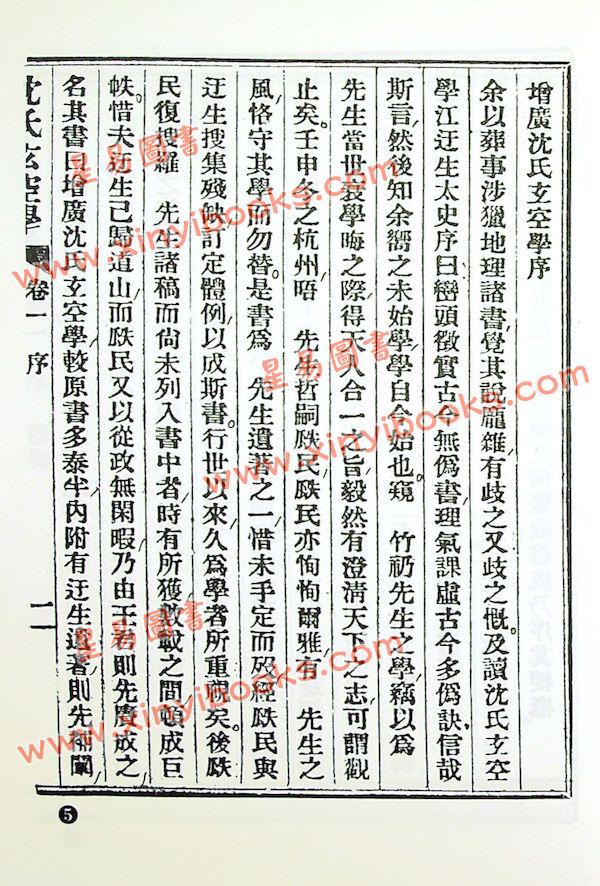 增廣沈氏玄空學序
余以葬事涉獵地理諸書覺其說龐雜有歧之又歧之慨及讀沈氏玄空
學江迂生太史序曰巒頭徵實古今無僞書理氣課虛古今多僞訣信哉
斯言然後知余嚮之未始學學自今始也窺 竹礽先生之學竊以爲
先生當世衰學晦之際得天人合一之旨毅然有澄淸天下之志可謂觀
止矣壬申冬之杭州晤 先生哲嗣瓞民瓞民亦恂恂爾雅有 先生之
風恪守其學而勿替是書爲 先生遺著之一惜未手定而歿經瓞民與
迂生搜集殘缺訂定體例以成斯書行世以來久爲學者所重視矣後瓞
民復搜羅 先生諸稿而尙未列入書中者時有所獲數載之間頓成巨
帙惜夫迂生已歸道山而瓞民又以從政無閑暇乃由王君則先賡成之
名其書曰增廣沈氏玄空學較原書多泰半內附有迂生遺著則先闡
沈氏玄空學 卷一 序 二
5
星易圖書
www.xinyibooks.com
星易圖書
www.xinyibooks.com
星易圖書
www.xinyibooks.com